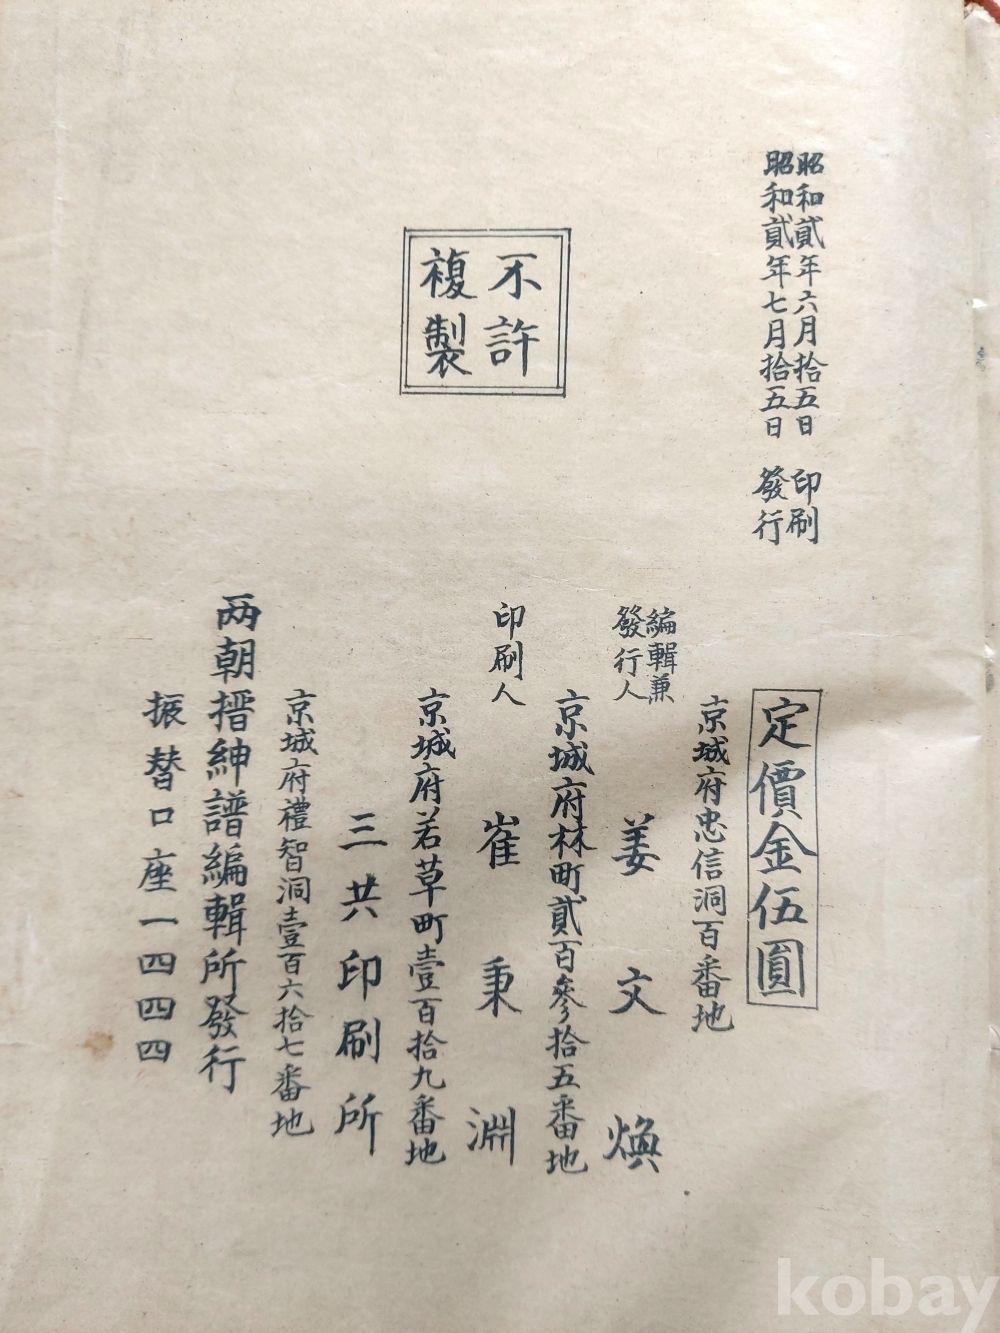 昭和貳年六月拾五日 印刷
昭和貳年七月拾五日 發行
不許
複製
定價金伍圓
京城府忠信洞百番地
編輯兼
發行人
姜文煥
京城府林町貳百參拾五番地
印刷人
崔秉淵
京城府若草町壹百拾九番地
三共印刷所
京城府禮智洞壹百六拾七番地
两朝搢紳譜編輯所發行
振替口座一四四四
kobay